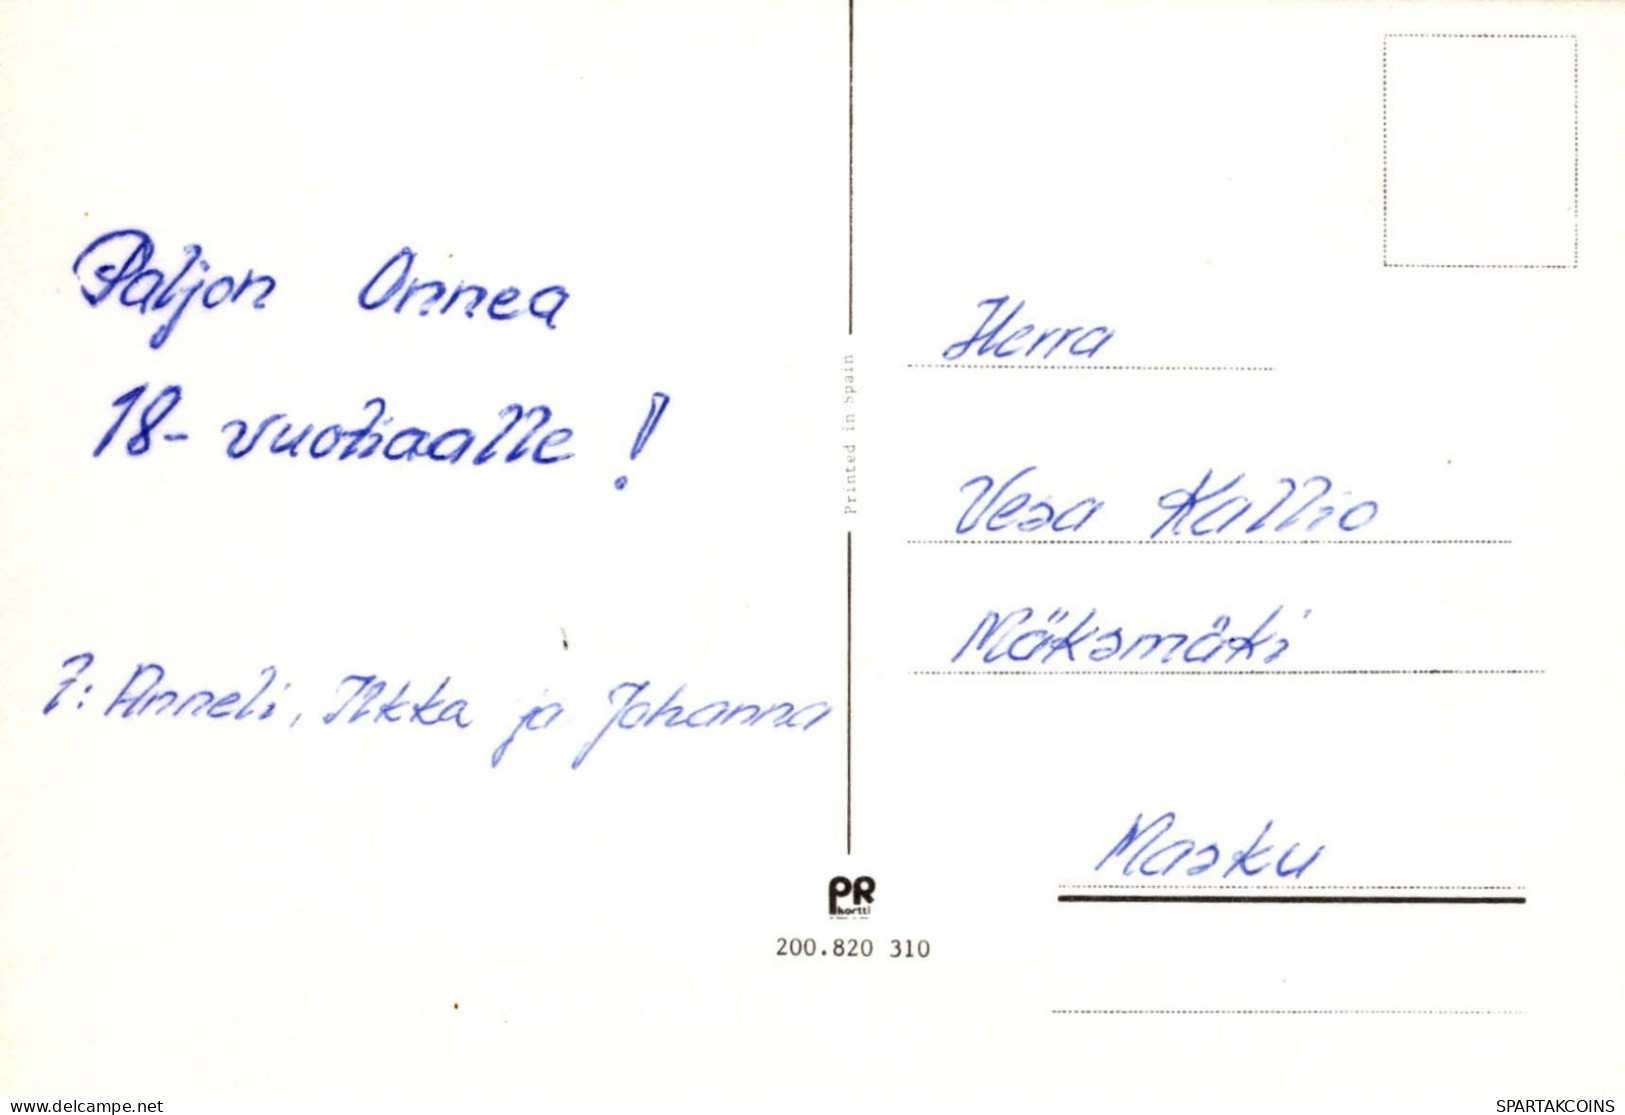 Paljon Onnea
18-vuotiaalle!
T: Anneli, Ilkka ja Johanna
Printed in Spain
PR
kortti
200.820 310
Herra
Vesa Kallio
Mäksmäki
Masku
delcampe.net
SPARTAKCOINS